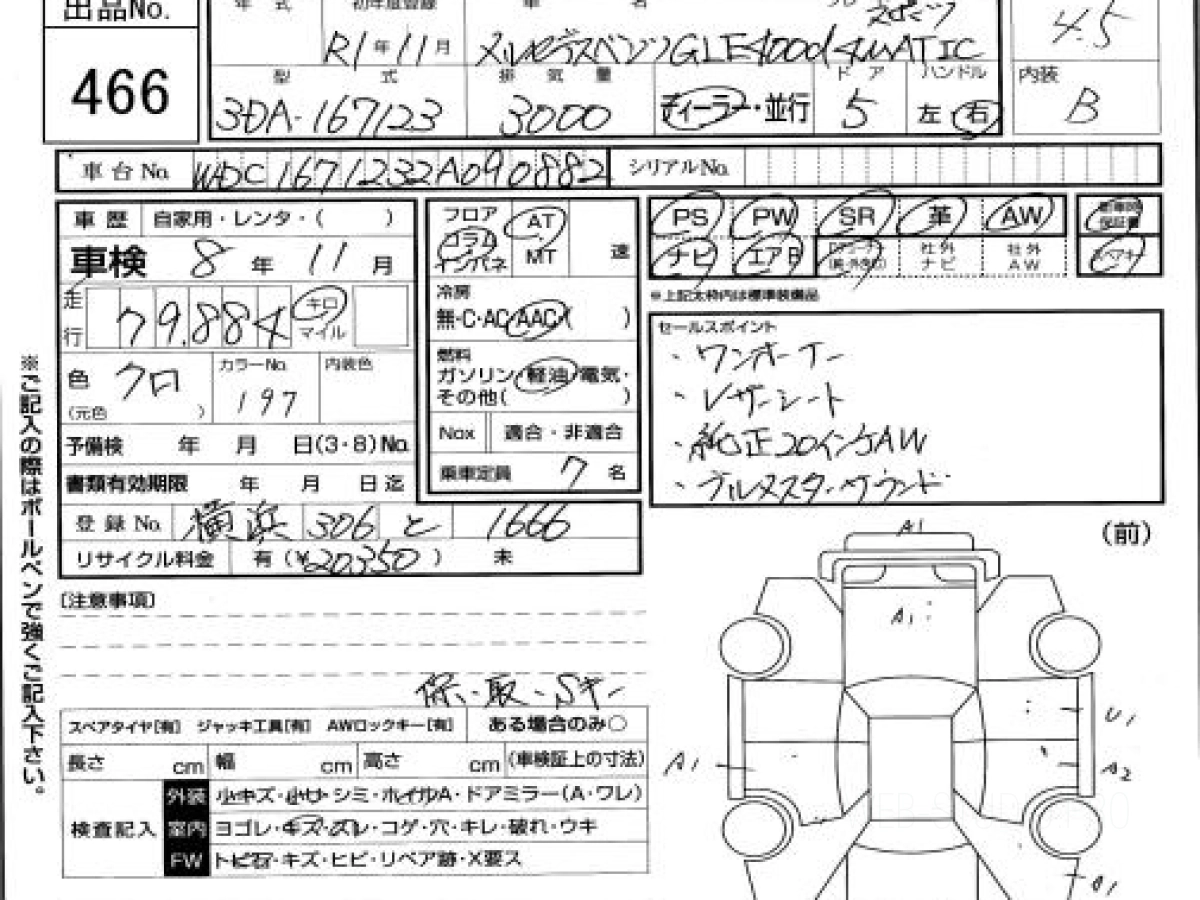 出品No.
466
年式 初年度登録 車名
R1年11月 メルセデスベンツGLE400d4MATIC スポーツ
4.5
型式 排気量 ドア ハンドル 内装
3DA-167123 3000 ディーラー・並行 5 左・右 B
車台No. WDC1671232A090882 シリアルNo.
車歴 自家用・レンタ・( )
車検 8年11月
走行 79,884 キロ マイル
色 クロ カラーNo. 197 内装色
(元色 )
予備検 年 月 日(3・8)No.
書類有効期限 年 月 日迄
登録No. 横浜 306 と 1666
リサイクル料金 有(¥20,350) 未
フロア コラム インパネ AT MT 速
冷房
無・C・AC・AAC( )
燃料
ガソリン・軽油・電気・
その他( )
Nox 適合・非適合
乗車定員 7名
PS PW SR 革 AW 保証書
ナビ エアB 社外ナビ 社外AW スペアキー
※上記太枠内は標準装備品
セールスポイント
・ワンオーナー
・レザーシート
・純正20インチAW
・ブルメスターサウンド
※ご記入の際はボールペンで強くご記入下さい。
[注意事項]
保・取・Sキー
スペアタイヤ[有] ジャッキ工具[有] AWロックキー[有] ある場合のみ○
長さ cm 幅 cm 高さ cm (車検証上の寸法)
検査記入
外装 小キズ・小凹・シミ・ホイルA・ドアミラー(A・ワレ)
室内 ヨゴレ・キズ・スレ・コゲ・穴・キレ・破れ・ウキ
FW トビ石・キズ・ヒビ・リペア跡・X要ス
(前)
A1
A1
U1
A1
A2
A1